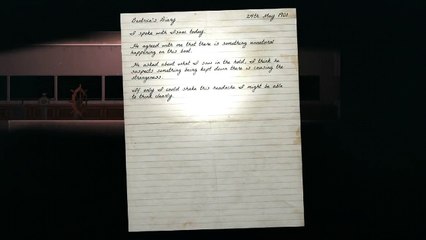 Beatrice's Diary 29th May 19
I spoke with Isaac today.
He agreed with me that there is something unnatural
happening on this boat.
He asked about what I saw in the hold, I think he
suspects something being kept down there is causing the
strangeness.
If only I could shake this headache I might be able
to think clearly.